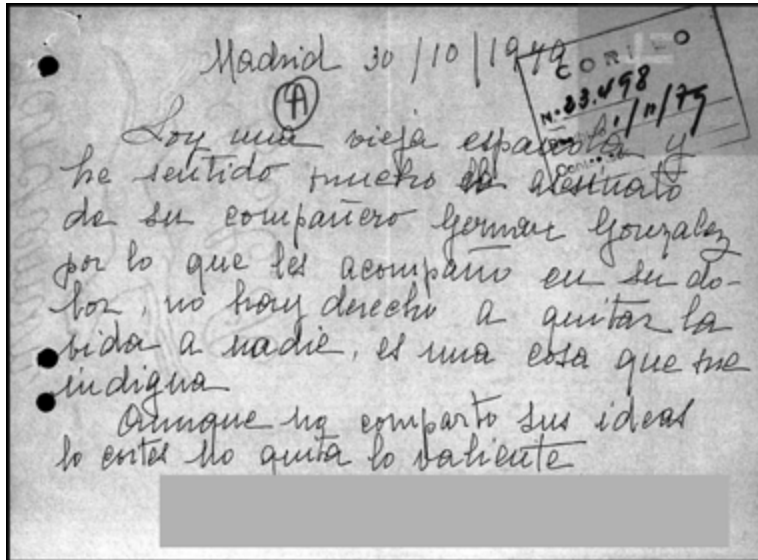 Madrid 30/10/1979
A
CORREO
N.º 23.498
1/11/79
Soy una vieja española y
he sentido mucho el asesinato
de su compañero German Gonzalez
por lo que les acompaño en su do-
lor, no hay derecho a quitar la
vida a nadie, es una cosa que me
indigna
Aunque no comparto sus ideas
lo cortes no quita lo valiente